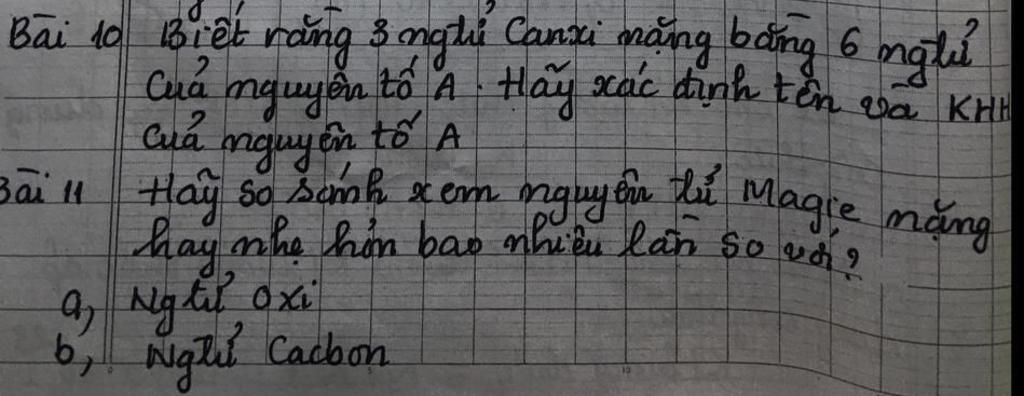 Bài 10 Biết rằng 3 ngtử Canxi nặng bằng 6 ngtử
của nguyên tố A. Hãy xác định tên và KHH
của nguyên tố A
Bài 11 Hãy so sánh xem nguyên tử Magie nặng
hay nhẹ hơn bao nhiêu lần so với?
a, Ngtử oxi
b, Ngtử Cacbon